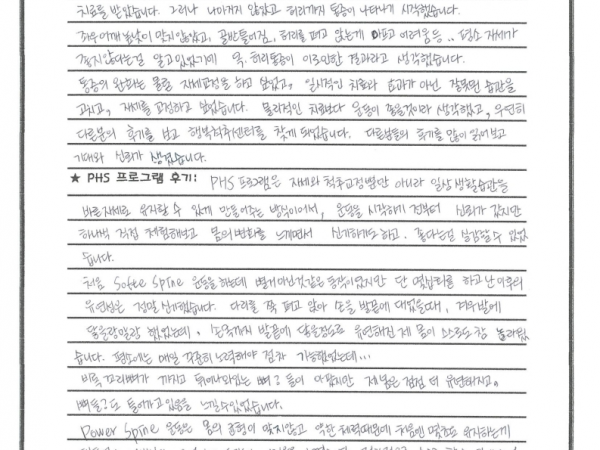 치료를 받았습니다. 그러나 나아지지 않았고 허리까지 통증이 나타나기 시작했습니다.
좌우어깨 높낮이 맞지않았고, 골반틀어짐, 허리를 펴고 앉는게 아프고 어려움 등.. 평소 자세가
좋지않다는걸 알고있었기에 목, 허리통증이 이로인한 결과라고 생각했습니다.
통증의 완화는 물론 자세교정을 하고 싶었고, 일시적인 치료나 효과가 아닌 잘못된 습관을
고치고, 자세를 교정하고 싶었습니다. 물리적인 치료보다 운동이 좋을것이라 생각했고, 우연히
다른분의 후기를 보고 행복척추센터를 찾게 되었습니다. 다른분들의 후기를 많이 읽어보고
기대와 신뢰가 생겼습니다.
★ PHS 프로그램 후기: PHS 프로그램은 자세와 척추교정뿐만 아니라 일상생활습관을
바른자세로 유지할 수 있게 만들어주는 방식이어서, 운동을 시작하기 전부터 신뢰가 갔지만
하나씩 직접 체험해보고 몸의 변화를 느끼면서 신기하기도 하고, 좋다는걸 실감할 수 있었
습니다.
처음 Softe Spine 운동을 하는데 별거아닌것같은 동작이었지만 단 몇십회를 하고 난 이후의
유연성은 정말 신기했습니다. 다리를 쭉 펴고 앉아 손을 발끝에 대었을때, 겨우발에
닿을랑말랑 했었는데, 손목까지 발끝에 닿을정도로 유연해진 제 몸이 스스로도 참 놀라웠
습니다. 평소에는 매일 꾸준히 노력해야 점차 가능했었는데...
비록 꼬리뼈가 까지고 튀어나와있는 뼈 들이 아팠지만 제 몸은 점점 더 유연해지고,
뼈들 도 들어가고 있음을 느낄수있었습니다.
Power Spine 운동은 몸의 균형이 맞지않고 약한 체력때문에 처음엔 몇초도 유지하는게